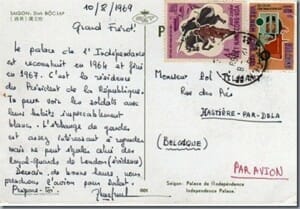 SAIGON, Dinh ĐỘC LẬP
10/8/1969
Grand Frérot.
Le palace de l'Indépendance
est reconstruit en 1964 et fini
en 1967. C'est la résidence
du Président de la République.
Tu peux voir les soldats avec
leurs habits impeccablement
blanc. L'échange de garde
est assez intéressant à regarder
mais ne peut égaler celui des
Royal-Guards de London
Demain, de bonne heure nous
prendrons l'avion pour Dalat.
P
Monsieur
Rue des Prés
HASTIÈRE-PAR-DELA
(BELGIQUE)
PAR AVION
001
Saigon: Palace de l'Indépendance
Independence Palace.